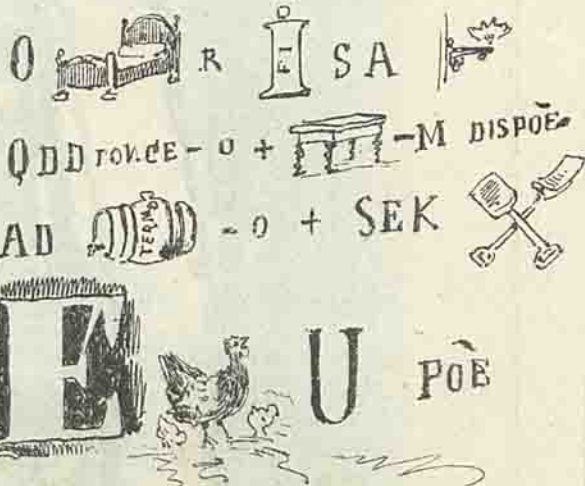 O R E S A
QDD TONCE - O + -M DISPÕE
AD TERMO - O + SEK
E U PÕE